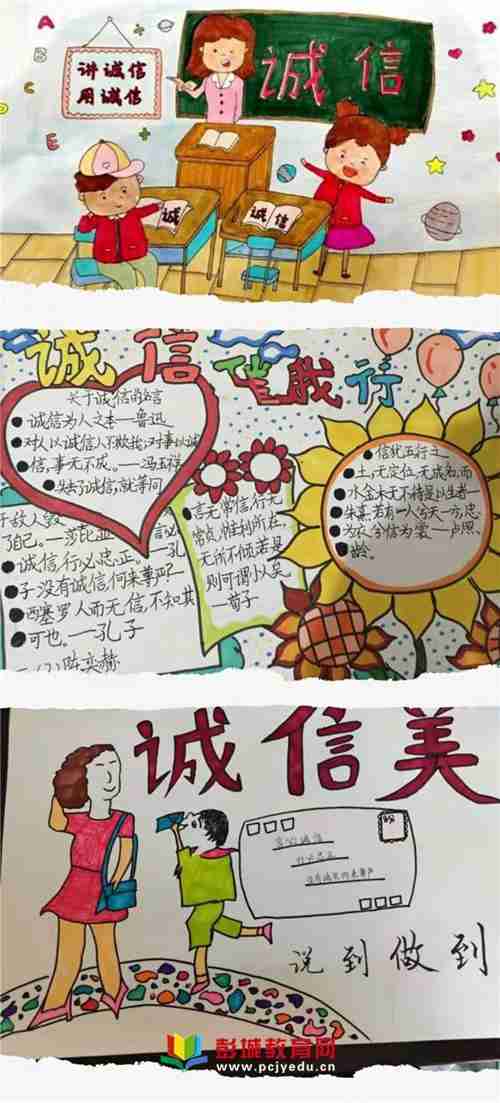 A
B
C
E
讲诚信
用诚信
诚信
诚
诚信
诚信伴我行
关于诚信的名言
诚信为人之本——鲁迅
对人以诚信人不欺我;对事以诚
信,事无不成。——冯玉祥
失去了诚信,就等同
于敌人毁
了自己。——莎士比亚
诚信,行必忠正。——孔
子
没有诚信,何来尊严?—
西塞罗
人而无信,不知其
可也。——孔子
言无常信,行无
常贞,惟利所在,
无所不倾,若是
则可谓小人矣
—荀子
信犹五行之
土,无定位,无成名,而
水金木无不待是以生者—
朱熹
若有一人今天一方,忠
为衣兮信为裳—卢照
龄。
诚信美
言必诚信
行必忠正
没有诚信何来尊严
说到做到
彭城教育网
www.pcjyedu.cn